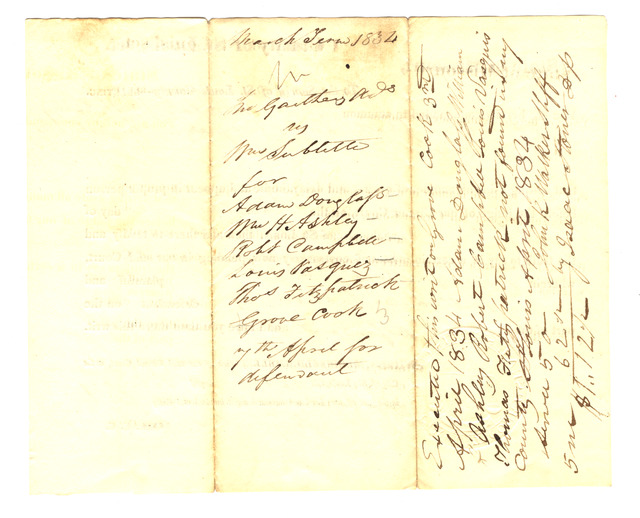 March Term 1834
Gauthers Ads
vs
Wm Sublette
for
Adam Douglass
Wm H Ashley
Robt Campbele
Louis Vasquez
Thos Fitzpatrick
Grove Cook 3
7th April for
defendant
Executed this writ on Grove Cook 3rd
April 1834 Adam Douglass William
Ashley Robert Campbell Louis Vasquis
Thomas Fitzpatrick not found in my
County St Louis April 1834
serv 50 James K Walker Shff
5 m 62 by Isaac A Dp
$1.12